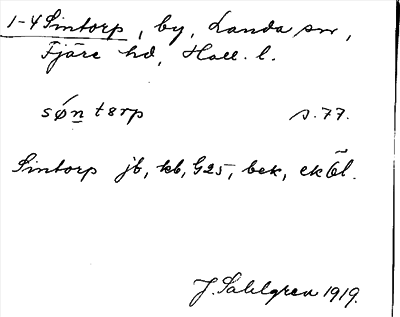 1-4 Sintorp, by, Landa sn,
Fjäre hd, Hall. l.
søn tørp s. 77.
Sintorp jb, kb, G25, bek, ek bl.
J. Sahlgren 1919.